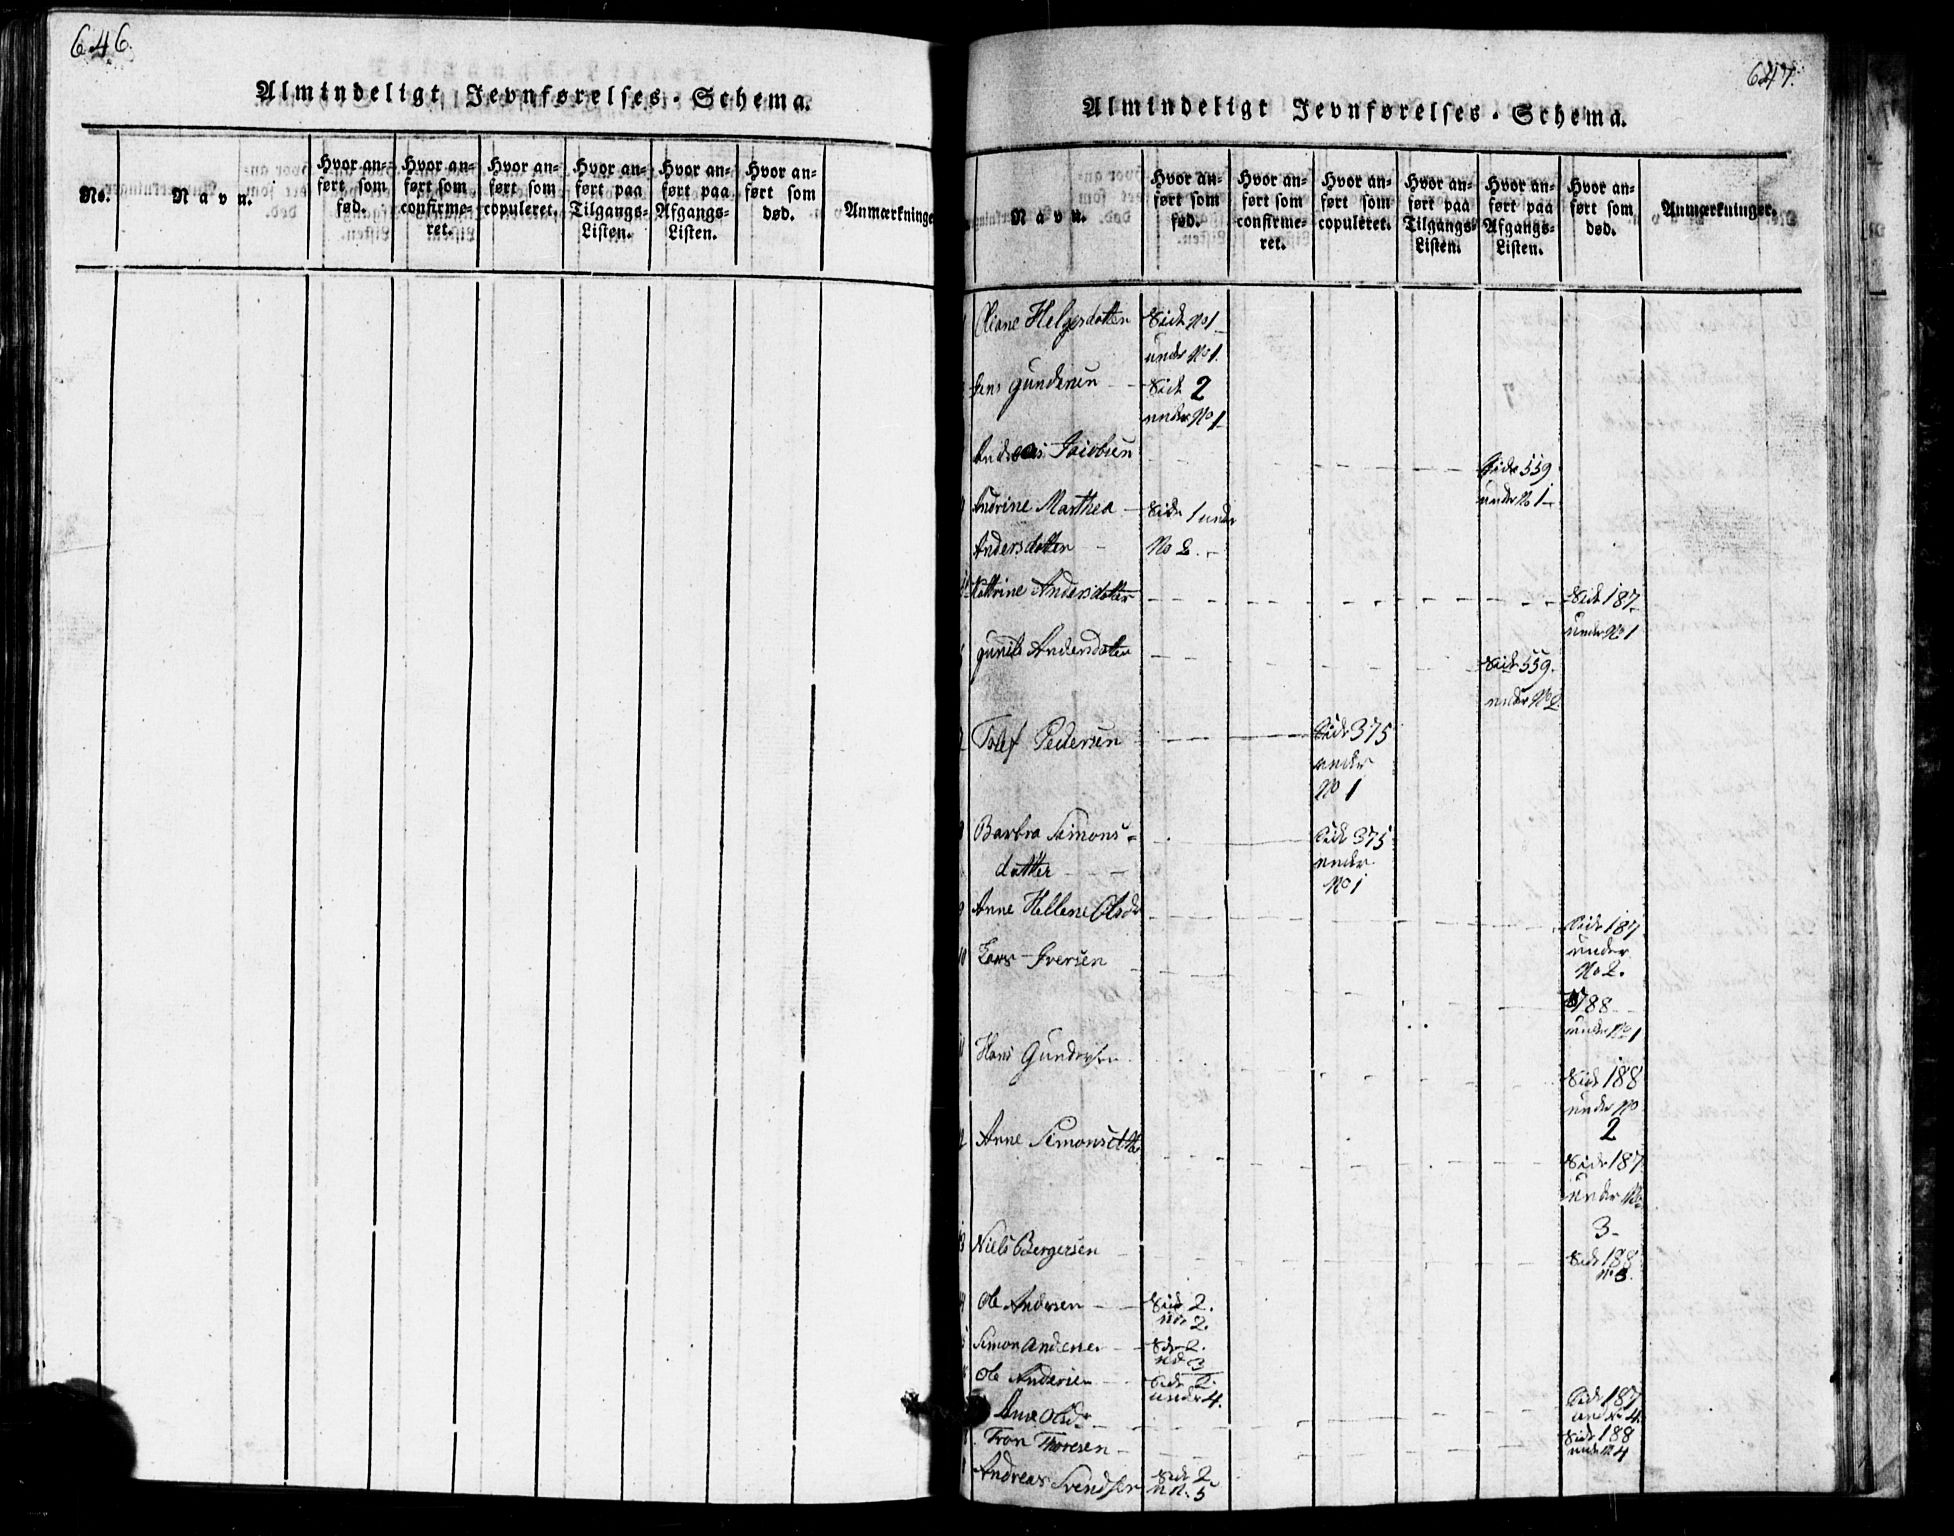 646.
Almindeligt Jevnførelses-Schema.
No.
Navn.
Hvor an-
ført som
fød.
Hvor an-
ført som
confirme-
ret.
Hvor an-
ført som
copuleret.
Hvor an-
ført paa
Tilgangs-
Listen.
Hvor an-
ført paa
Afgangs-
Listen.
Hvor an-
ført som
død.
Anmærkninge
647.
Almindeligt Jevnførelses-Schema.
Navn.
Hvor an-
ført som
fød.
Hvor an-
ført som
confirme-
ret.
Hvor an-
ført som
copuleret.
Hvor an-
ført paa
Tilgangs-
Listen.
Hvor an-
ført paa
Afgangs-
Listen.
Hvor an-
ført som
død.
Anmærkninger.
Helgesdatter Side No 1
under No 1.
Jens Gundersen Side 2
under No 1
Andreas Jacobsen Side 559
under No 1
Andrine Marthea Side 1 under
Andersdatter No 2.
Andersdatter Side 187
under No 1
Gunild Andersdatter Side 559.
under No 2
Tolef Pedersen Side 375
under
No 1
Barbra Simons-
datter Side 375
under
No 1
Anne Hellene Olsdr Side 187
under
No 2.
10 Lars Iversen 188
under No 1
Hans Gundersen Side 188
under No
2
Anne Simonsdtter Side 187
under No
3
Niels Bergersen Side 188
No 3.
Ole Andersen Side 2.
No 2.
Simon Andersen Side 2.
No 3
Ole Andersen Side 2.
under 4.
Ane Olsdr Side 187
No 4.
Thoresen Side 188
No 4
Andreas Svendsen Side 2
No. 5